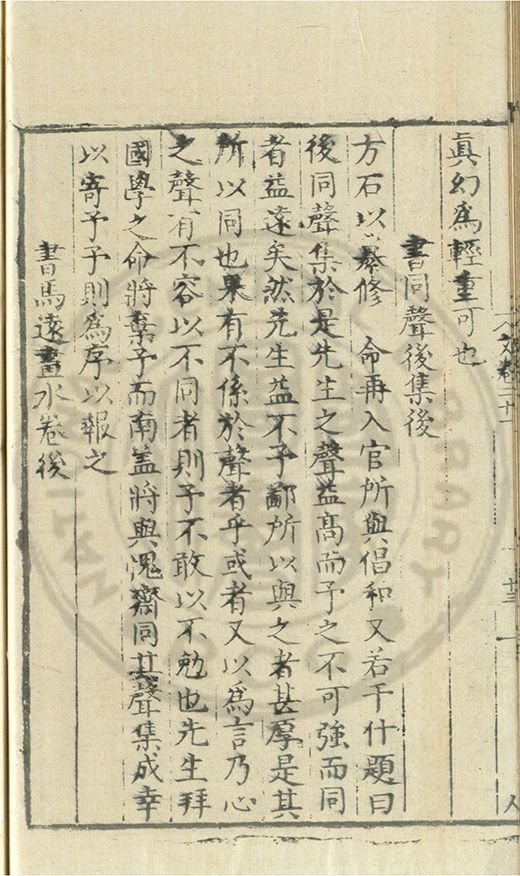 文卷二十一
十三
眞幻爲輕重可也
書同聲後集後
方石以纂修 命再入官所與倡和又若干什題曰
後同聲集於是先生之聲益髙而予之不可強而同
者益遠矣然先生益不予鄙所以與之者甚厚是其
所以同也果有不係於聲者乎或者又以爲言乃心
之聲有不容以不同者則予不敢以不勉也先生拜
國學之命將棄予而南盖將與愧齋同其聲集成幸
以寄予予則爲序以報之
書馬遠畫水卷後